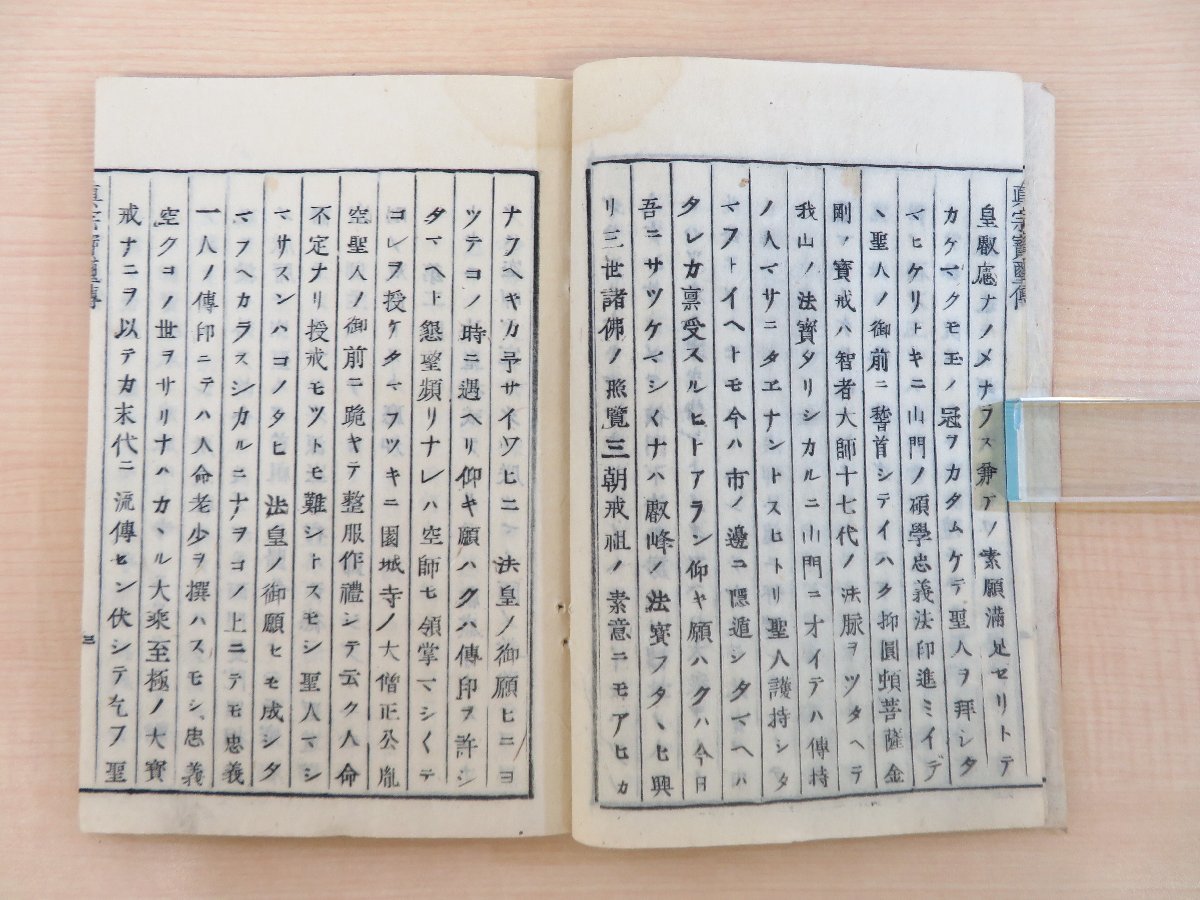 眞宗寶
皇叡慮ナノメナラス兼テノ素願滿足セリトテ
カケマクモ玉ノ冠ヲカタムケテ聖人ヲ拜シタ
マヒケリトキニ山門ノ碩學忠義法印進ミイデ
丶聖人ノ御前ニ稽首シテイハク抑圓頓菩薩金
剛ノ寶戒ハ智者大師十七代ノ法脉ヲツタヘテ
我山ノ法寶タリシカルニ山門ニオイテハ傳持
ノ人マサニタヱナントスヒトリ聖人護持シタ
マフトイヘトモ今ハ市ノ邊ニ隱遁シタマヘハ
タレカ禀受スルヒトアラン仰キ願ハクハ今日
吾ニサツケマシ〱ナハ叡峰ノ法寶フタヽヒ興
リ三世諸佛ノ照覽三朝戒祖ノ素意ニモアヒカ
ナフヘキカ予サイワヒニ 法皇ノ御願ヒニヨ
ツテコノ時ニ遇ヘリ仰キ願ハクハ傳印ヲ許シ
タマヘト懇望頻リナレハ空師モ領掌マシ〱テ
コレヲ授ケタマフツキニ園城寺ノ大僧正公胤
空聖人ノ御前ニ跪キテ整服作禮シテ云ク人命
不定ナリ授戒モツトモ難シトスモシ聖人マシ
マサスンハコノタヒ 法皇ノ御願ヒモ成シタ
マフヘカラスシカルニナヲコノ上ニテモ忠義
一人ノ傳印ニテハ人命老少ヲ撰ハスモシ忠義
空クコノ世ヲサリナハカヽル大乘至極ノ大寶
戒ナニヲ以テカ末代ニ流傳セン伏シテ乞フ聖
三